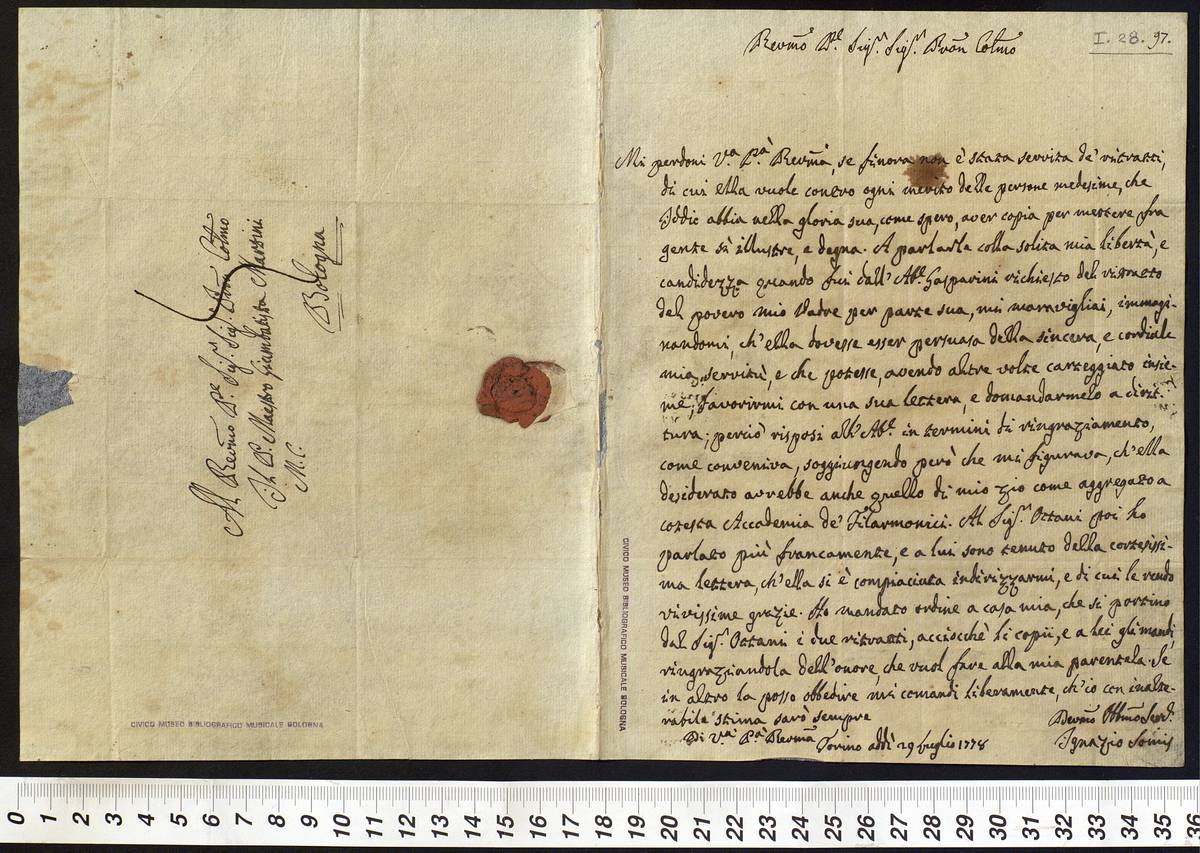 Al Revmo Pre Sigr. Sigr. Pron Colmo
Il P. Maestro Giambatista Martini
M.C.
Bologna
CIVICO MUSEO BIBLIOGRAFICO MUSICALE BOLOGNA
CIVICO MUSEO BIBLIOGRAFICO MUSICALE BOLOGNA
I. 28. 97.
Revmo Pe. Sigr. Sigr. Pron Colmo
Mi perdoni V.a P.tà Revma, se finora non è stata servita de' ritratti,
di cui ella vuole contro ogni merito delle persone medesime, che
Iddio abbia nella gloria sua, come spero, aver copia per mettere fra
gente sì illustre, e degna. A parlarle colla solita mia libertà, e
candidezza quando fui dall' Abe. Gasparini richiesto del ritratto
del povero mio Padre per parte sua, mi maravigliai, immagi-
nandomi, ch'ella dovesse esser persuasa della sincera, e cordiale
mia servitù, e che potesse, avendo altre volte carteggiato insie-
me, favorirmi con una sua lettera, e domandarmelo a dirit-
tura; perciò risposi all' Abe. in termini di ringraziamento,
come conveniva, soggiungendo però che mi figurava, ch'ella
desiderato avrebbe anche quello di mio zio come aggregato a
cotesta Accademia de' Filarmonici. Al Sigr. Ottani poi ho
parlato più francamente, e a lui sono tenuto della cortesissi-
ma lettera, ch'ella si è compiaciuta indirizzarmi, e di cui le rendo
vivissime grazie. Ho mandato ordine a casa mia, che si portino
dal Sigr. Ottani i due ritratti, acciocchè li copii, e a lei gli mandi,
ringraziandola dell'onore, che vuol fare alla mia parentela. Se
in altro la posso obbedire mi comandi liberamente, ch'io con inalte-
rabile stima sarò sempre
Di V.a P.tà Revma Torino addì 29 luglio 1778
Devmo Obbmo Serv.
Ignazio Somis
0 1 2 3 4 5 6 7 8 9 10 11 12 13 14 15 16 17 18 19 20 21 22 23 24 25 26 27 28 29 30 31 32 33 34 35 36